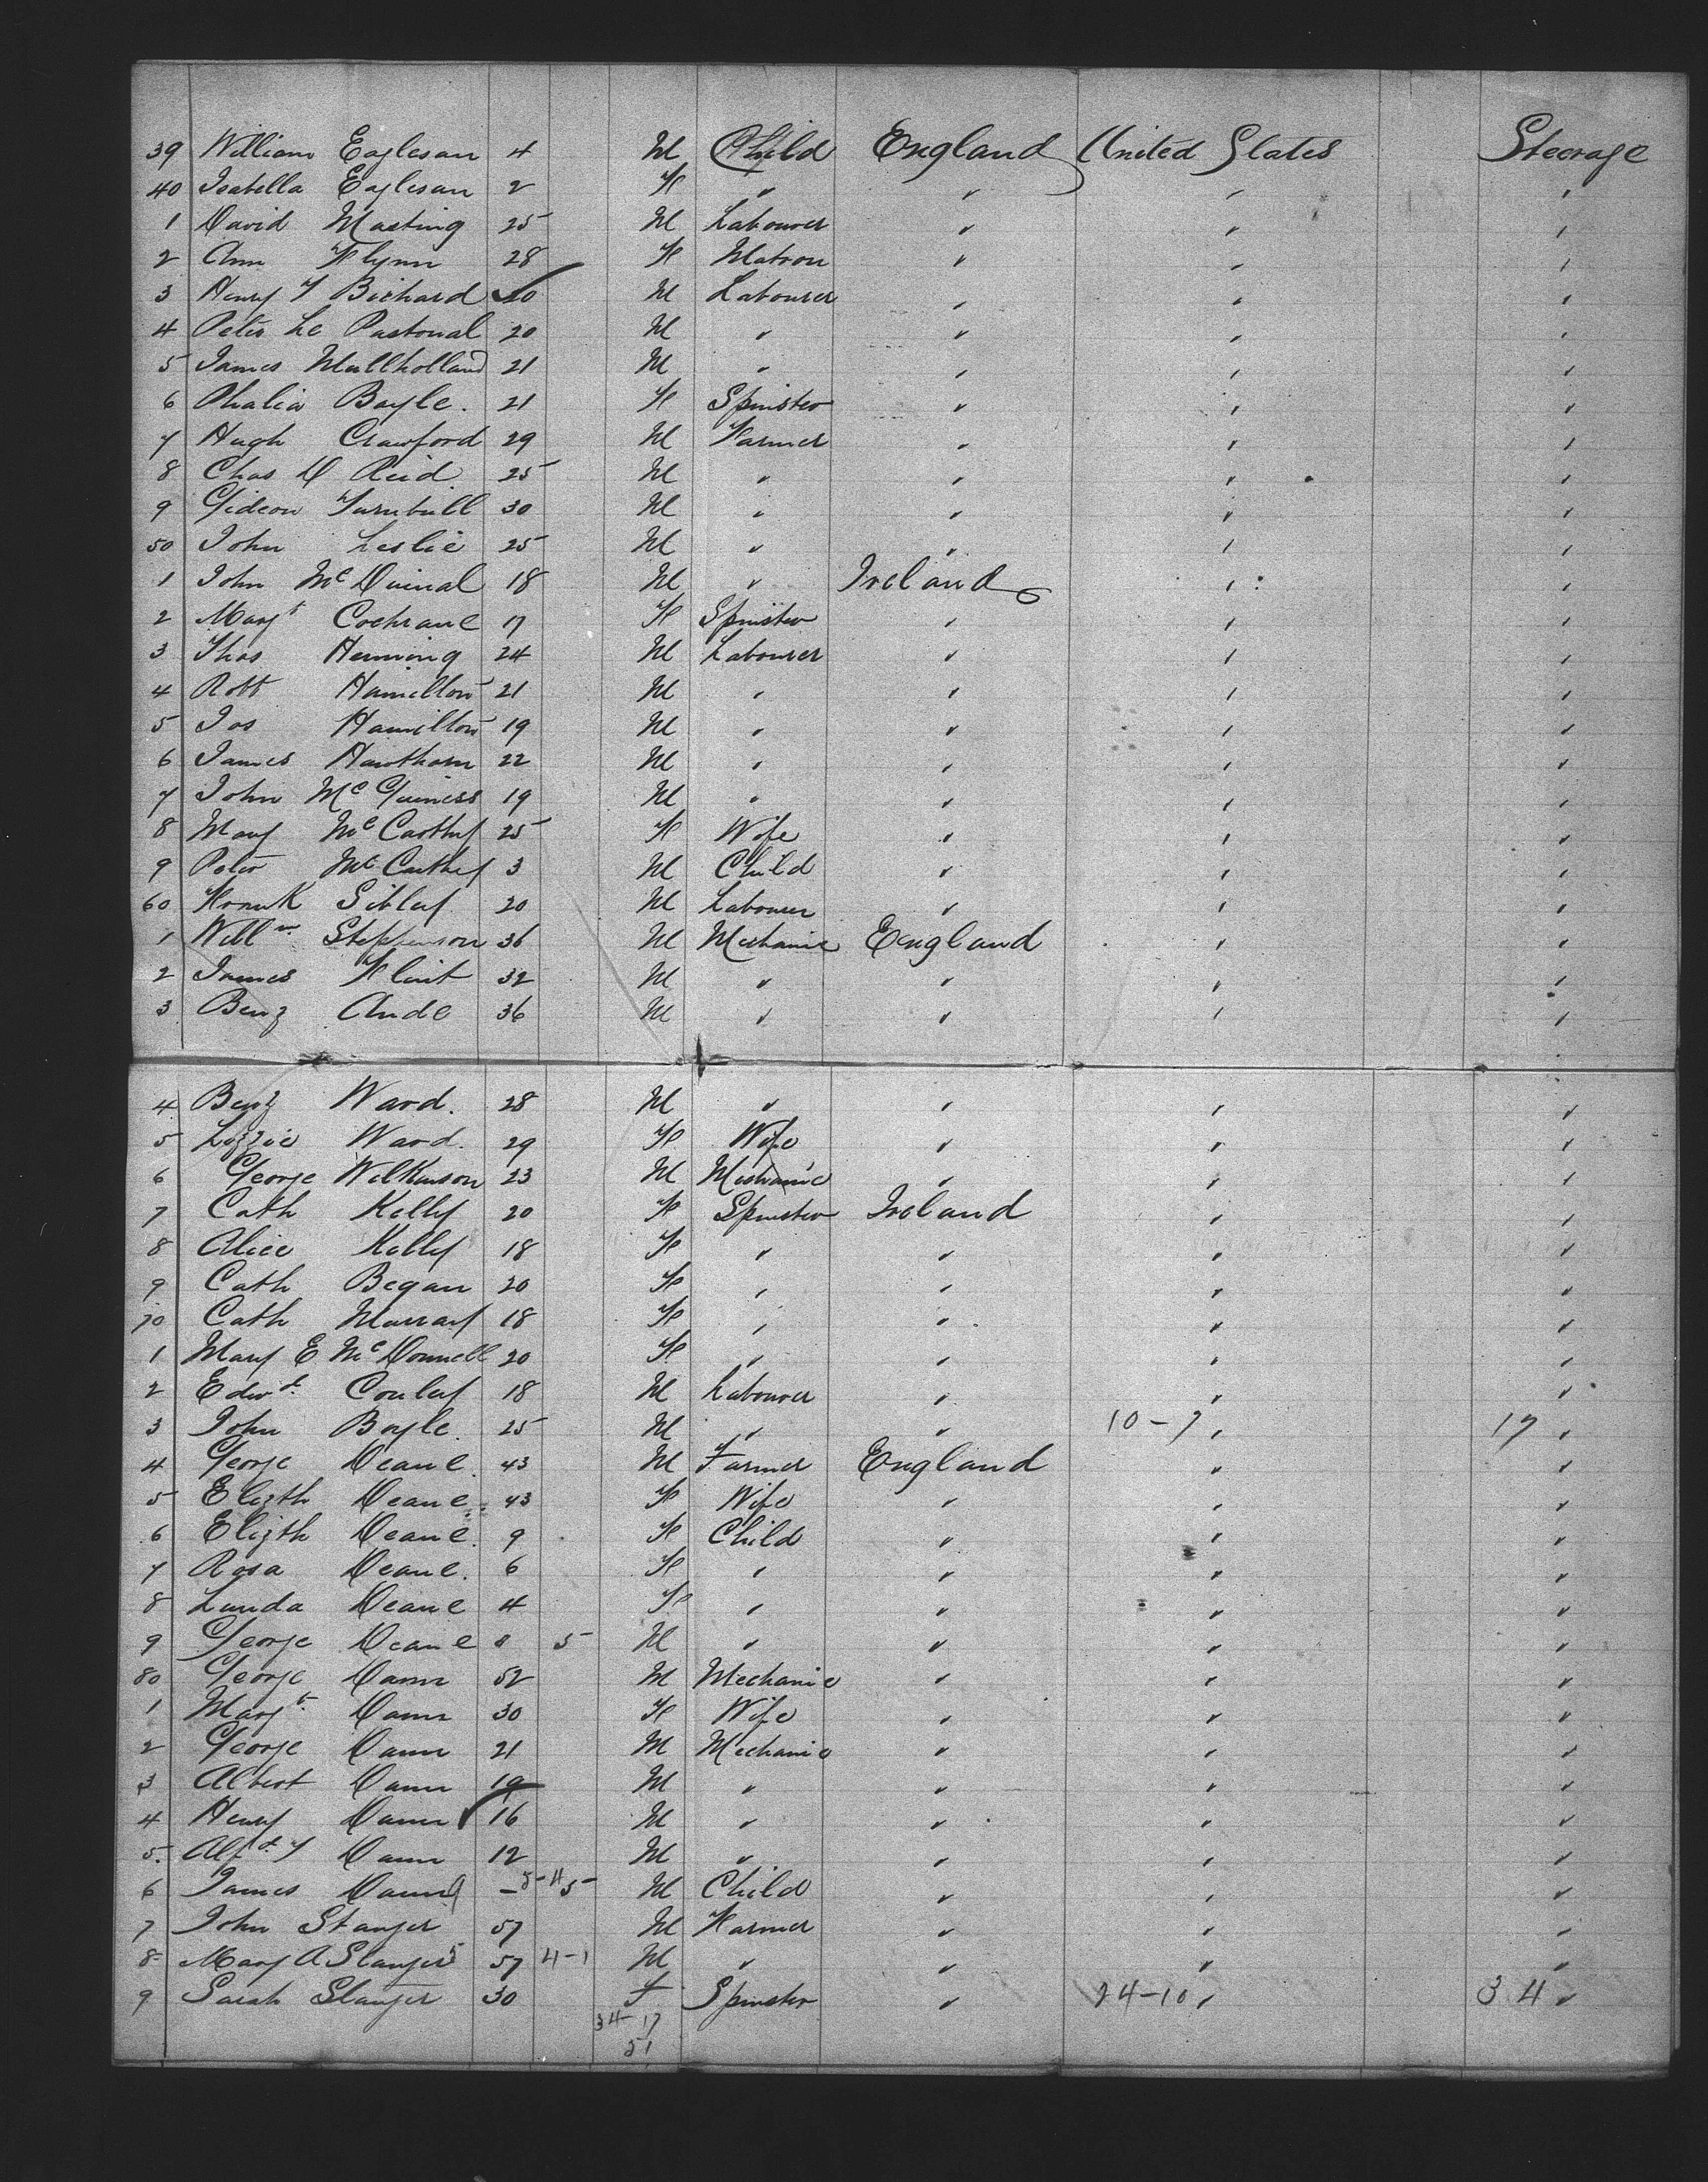 39 William Eaglesan 4 M Child England United States Steerage
40 Isabella Eaglesan 2 F " " " "
1 David Masting 25 M Labourer " " "
2 Ann Flynn 28 F Matron " " "
3 Henry T Bichard 20 M Labourer " " "
4 Peter Le Pastonal 20 M " " " "
5 James Mullholland 21 M " " " "
6 Phalia Boyle. 21 F Spinster " " "
7 Hugh Crawford 29 M Farmer " " "
8 Chas D Reid 25 M " " " "
9 Gideon Turnbull 30 M " " " "
50 John Leslie 25 M " " " "
1 John Mc 18 M " Ireland " "
2 Margt Cochrane 17 F Spinster " " "
3 Thos Henning 24 M Labourer " " "
4 Robt Hamilton 21 M " " " "
5 Jos Hamilton 19 M " " " "
6 James Hawthorn 22 M " " " "
7 John McGuiness 19 M " " " "
8 Mary McCarthy 25 F Wife " " "
9 Peter McCarthy 3 M Child " " "
60 Frank Sibley 20 M Labourer " " "
1 Willm Stephenson 36 M Mechanic England " "
2 James Flint 32 M " " " "
3 Benj Ande 36 M " " " "
4 Benj Ward. 28 M " " " "
5 Lizzie Ward. 29 F Wife " " "
6 George Wilkinson 23 M Mechanic " " "
7 Cath Kelly 20 F Spinster Ireland " "
8 Alice Kelly 18 F " " " "
9 Cath Began 20 F " " " "
70 Cath Murray 18 F " " " "
1 Mary E McDonnell 20 F " " " "
2 Edwd Conley 18 M Labourer " " "
3 John Boyle. 25 M " " 10-7 " 17 "
4 George Deane. 43 M Farmer England " "
5 Elizth Deane. 43 F Wife " " "
6 Elizth Deane. 9 F Child " " "
7 Rosa Deane. 6 F " " " "
8 Lunda Deane 4 F " " " "
9 George Deane 0 5 M " " " "
80 George Dann 52 M Mechanic " " "
1 Margt Dann 30 F Wife " " "
2 George Dann 21 M Mechanic " " "
3 Albert Dann 19 M " " " "
4 Henry Dann 16 M " " " "
5. Alfd T Dann 12 M " " " "
6 James Dann 9 - 5-4 5 M Child " " "
7 John Stanger 57 M Farmer " " "
8 Mary A Stanger 5 57 4-1 M " " " "
9 Sarah Stanger 30 F Spinster " 24-10 " 34 "
34-17
51